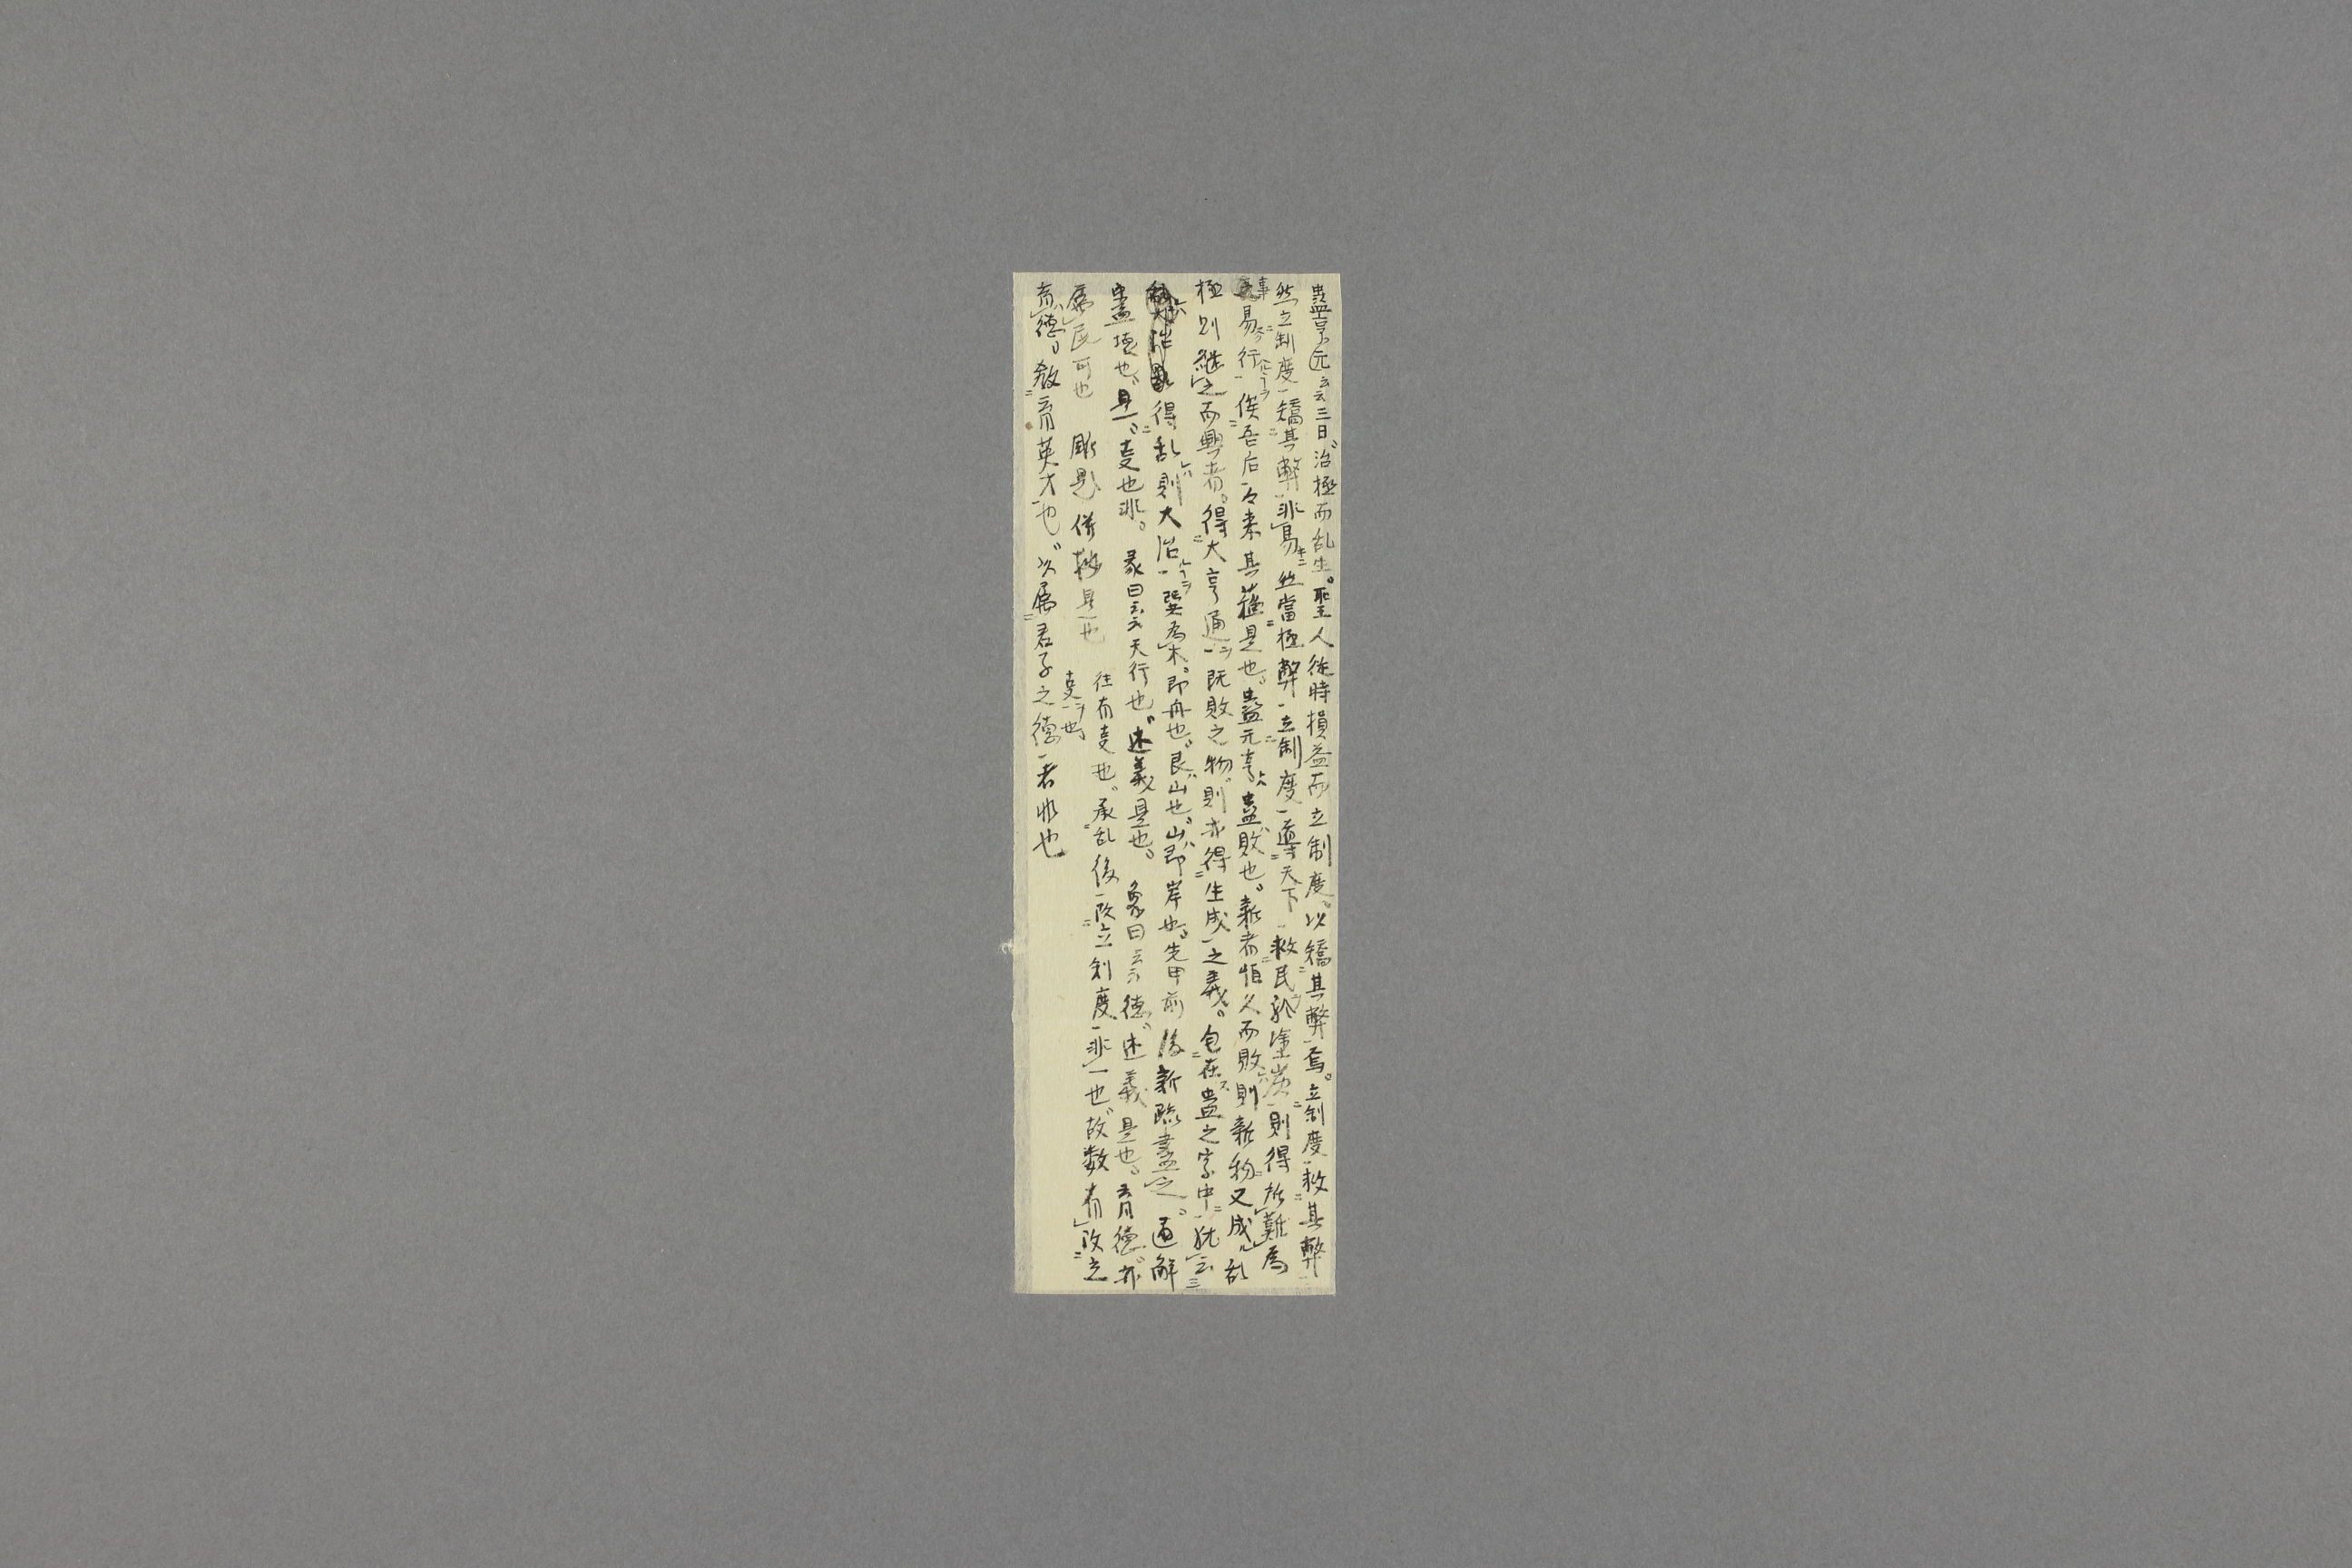 蠱亨元云云三日治極而乱生。聖人從時損益而立制度。以矯其弊焉。立制度救其弊
然立制度矯其弊非易丝當極弊立制度導天下救民於塗炭則得所難為
事易行俟吾后々来其蘓是也。蠱元亨蠱敗也。新者恒久而敗則新物又成乱
極則継之而興者。得大亨通既敗之物則亦得生成之義。包在蠱之字中犹云
得乱則大治巽為木。即舟也。艮山也。山即岸也。先甲前後新疏盡之。通解
蠱壊也是。叓也非。彖曰云云天行也述義是也。象曰云云德述義是也。育德亦
往有叓也。承乱後改立制度非一也故数有改立
叓也
属民可也 併 是也
育德。教育英才也以属君子之德者非也